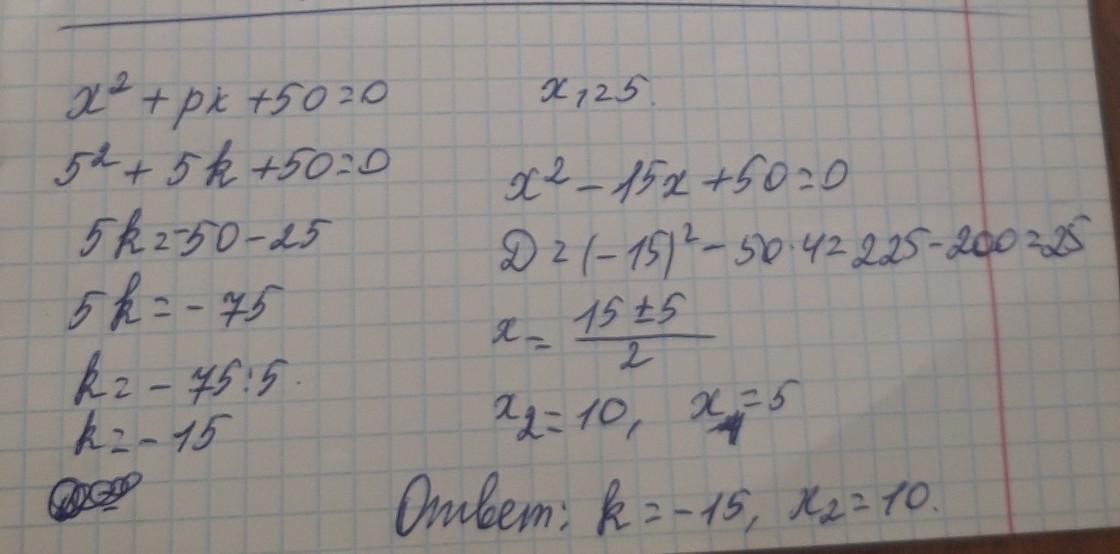 x² + px + 50 = 0
5² + 5k + 50 = 0
5k = -50 - 25
5k = - 75
k = - 75 : 5.
k = - 15
x₁ = 5.
x² - 15x + 50 = 0
D = (-15)² - 50·4 = 225 - 200 = 25
x = (15 ± 5)/2
x₂ = 10, x₁ = 5
Ответ: k = -15, x₂ = 10.